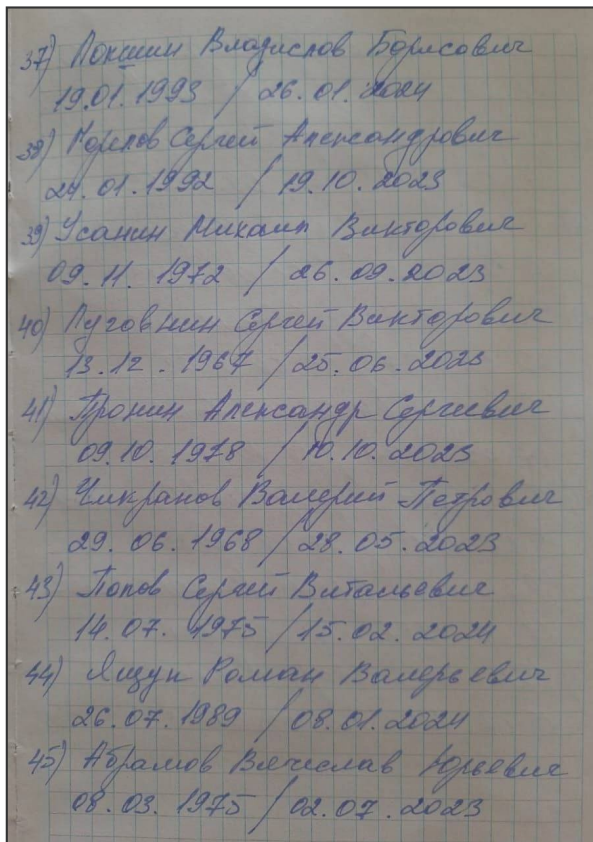 37) Локшин Владислав Борисович
19.01.1993 / 26.01.2024
38) Морсков Сергей Александрович
24.01.1992 / 19.10.2023
39) Усанин Михаил Викторович
09.11.1972 / 26.09.2023
40) Луговнин Сергей Викторович
13.12.1967 / 25.06.2023
41) Пронин Александр Сергеевич
09.10.1978 / 10.10.2023
42) Чикранов Валерий Петрович
29.06.1968 / 28.05.2023
43) Попов Сергей Витальевич
14.07.1975 / 15.02.2024
44) Ящук Роман Валерьевич
26.07.1989 / 08.01.2024
45) Абрамов Вячеслав Юрьевич
08.03.1975 / 02.07.2023